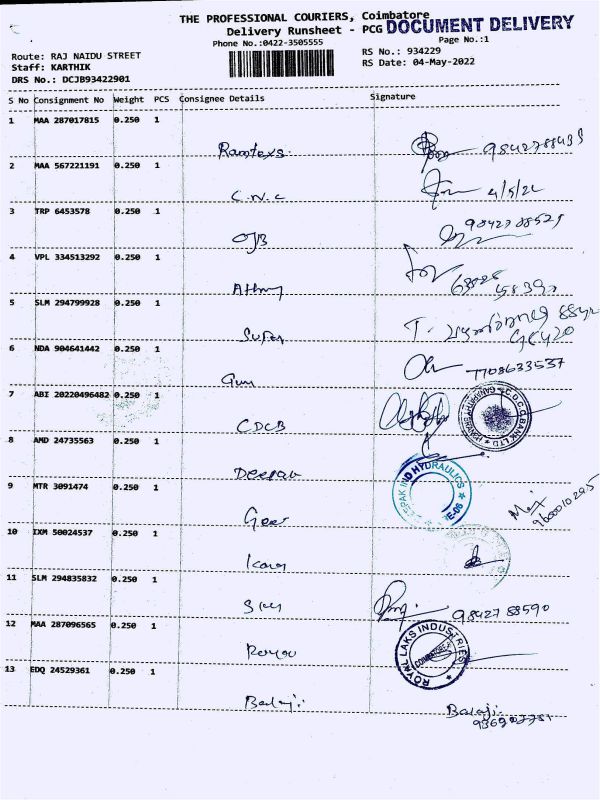 THE PROFESSIONAL COURIERS, Coimbatore
Delivery Runsheet - PCG DOCUMENT DELIVERY
Phone No.:0422-3505555
Page No.:1
Route: RAJ NAIDU STREET
RS No.: 934229
Staff: KARTHIK
RS Date: 04-May-2022
DRS No.: DCJB93422901
S No Consignment No Weight PCS Consignee Details Signature
1 MAA 287017815 0.250 1
2 MAA 567221191 0.250 1
C.N.C 4/5/22
3 TRP 6453578 0.250 1
OJB
4 VPL 334513292 0.250 1
5 SLM 294799928 0.250 1
Super
6 NDA 904641442 0.250 1
7708633537
7 ABI 20220496482 0.250 1
CDCB
C.D.C.C. BANK LTD
8 AMD 24735563 0.250 1
Deepak
IND HYDRAULICS
9 MTR 3091474 0.250 1
10 IXM 50024537 0.250 1
11 SLM 294835832 0.250 1
9842788590
12 MAA 287096565 0.250 1
Royal
ROYAL LAKS INDUSTRIES
13 EDQ 24529361 0.250 1
Balaji
Balaji